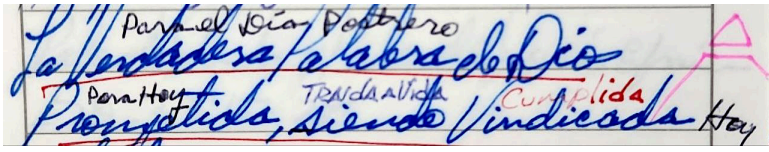 Para el Día Postrero
La Verdadera Palabra de Dios
Para Hoy TRAIDA A Vida Cumplida
Prometida, siendo Vindicada Hoy